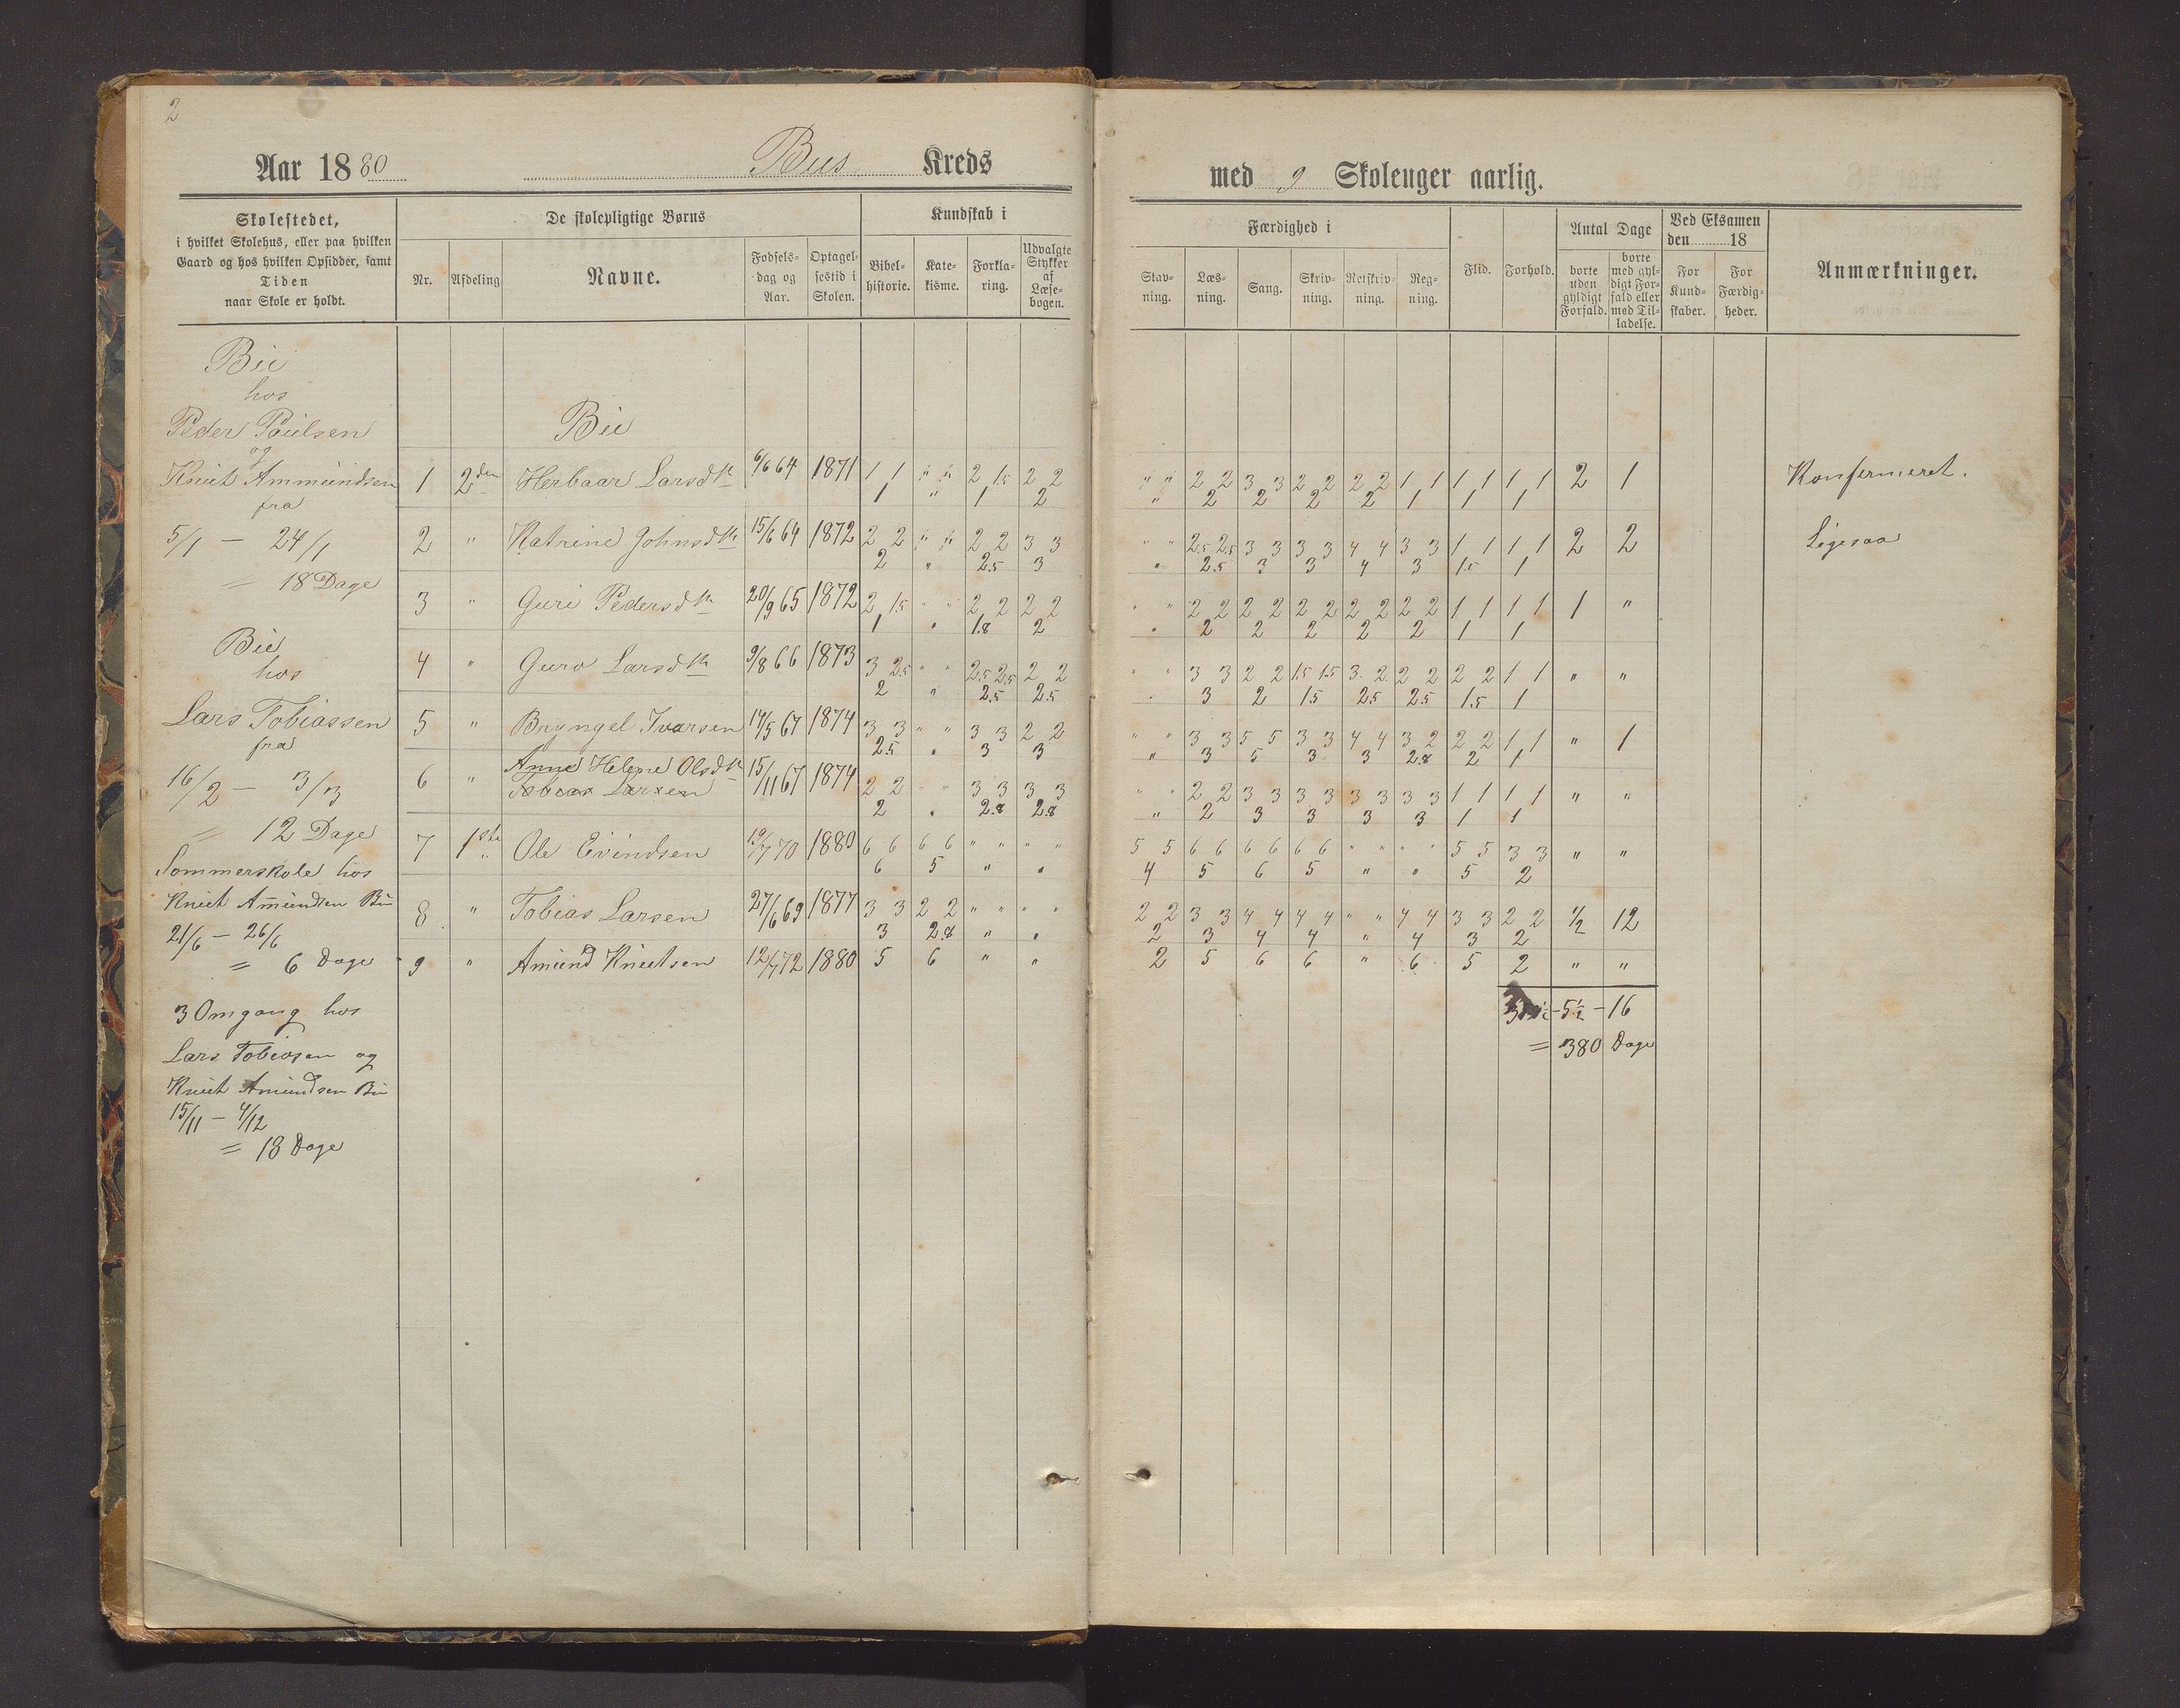 2
Aar 1880 Bus Kreds
Skolestedet,
i hvilket Skolehus, eller paa hvilken
Gaard og hos hvilken Opsidder, samt
Tiden
naar Skole er holdt.
De skolepligtige Børns
Nr. Afdeling Navne. Fødsels-dag og Aar. Optagelsestid i Skolen.
Kundskab i
Bibelhistorie. Katekisme. Forklaring. Udvalgte Stykker af Læsebogen.
Bu
hos
Peder Paulsen
og
Knut Ammundsen
fra
5/1 — 24/1
= 18 Dage
Bu
hos
Lars Tobiassen
fra
16/2 — 3/3
= 12 Dage
Sommerskole hos
Knut Amundsen Bu
21/6 — 26/6
= 6 Dage
3 Omgang hos
Lars Tobiasen og
Knut Amundsen Bu
15/11 — 4/12
= 18 Dage
Bu
1 2den Herbaar Larsdtr 6/6 64 1871 1 1 " " 2 1.5 2 2
1 " 1 2
2 " Katrine Johnsdtr 15/6 64 1872 2 2 " " 2 2 3 3
2 " 2.5 3
3 " Guri Pedersdtr 20/9 65 1872 2 1.5 " " 2 2 2 2
1 " 1.8 2
4 " Guro Larsdtr 9/8 66 1873 3 2.5 " " 2.5 2.5 2 2
2 " 2.5 2.5
5 " Bryngel Ivarsen 14/5 67 1874 3 3 " " 3 3 2 2
2.5 " 3 3
Anne Helene Olsdtr
6 " Tobias Larsen 15/11 67 1874 2 2 " " 3 3 3 3
2 " 2.8 2.8
7 1ste Ole Eivindsen 19/7 70 1880 6 6 6 6 " " " "
6 5 " "
8 " Tobias Larsen 27/6 69 1877 3 3 2 2 " " " "
3 2.8 " "
9 " Amund Knutsen 12/7 72 1880 5 6 " "
med 9 Skoleuger aarlig.
Færdighed i
Stavning. Læsning. Sang. Skrivning. Retskrivning. Regning. Flid. Forhold.
Antal Dage
borte uden gyldigt Forfald. borte med gyldigt Forfald eller med Tilladelse.
Ved Eksamen
den 18
For Kundskaber. For Færdigheder.
Anmærkninger.
" " 2 2 3 3 2 2 2 2 1 1 1 1 1 1 2 1 Konfermeret.
" 2 2 2 2 1 1 1
" " 2.5 2.5 3 3 3 3 4 4 3 3 1 1 1 1 2 2 Ligesaa
" 2.5 3 3 4 3 1.5 1
" " 2 2 2 2 2 2 2 2 2 2 1 1 1 1 1 "
" 2 2 2 2 2 1 1
" " 3 3 2 2 1.5 1.5 3 2 2 2 2 2 1 1 " "
" 3 2 1.5 2.5 2.5 1.5 1
" " 3 3 5 5 3 3 4 4 3 2 2 2 1 1 " 1
" 3 5 3 3 2.8 2 1
" " 2 2 3 3 3 3 3 3 3 3 1 1 1 1 " "
" 2 3 3 3 3 1 1
5 5 6 6 6 6 6 6 " " " " 5 5 3 3 " "
4 5 6 5 " " 5 2
2 2 3 3 4 4 4 4 " " 4 4 3 3 2 2 1/2 12
2 3 4 4 " 4 3 2
2 5 6 6 " 6 5 2 " "
- 5 1/2 - 16
= 380 Dage